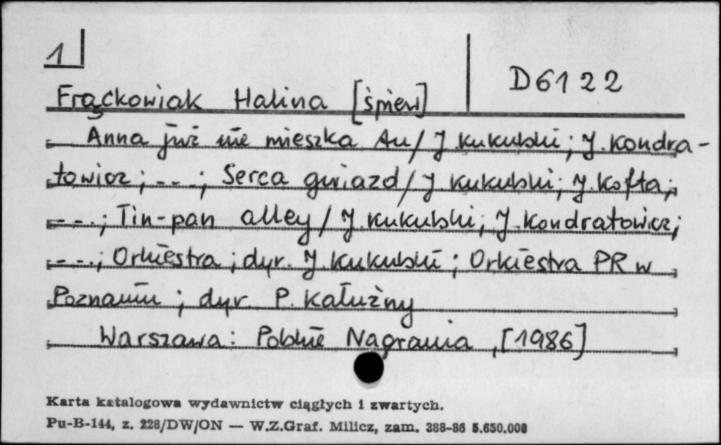 1
D6122
Frąckowiak Halina [śpiew]
Anna już nie mieszka tu / J. Kukulski ; J. Kondra-
towicz ; - - - ; Serca gwiazd / J. Kukulski ; J. Kofta ;
- - - ; Tin-pan alley / J. Kukulski ; J. Kondratowicz ;
- - - ; Orkiestra ; dyr. J. Kukulski ; Orkiestra PR w
Poznaniu ; dyr. P. Kałużny
Warszawa : Polskie Nagrania , [1986]
Karta katalogowa wydawnictw ciągłych i zwartych.
Pu-B-144, z. 228/DW/ON — W.Z.Graf. Milicz, zam. 388-86 5.650.000